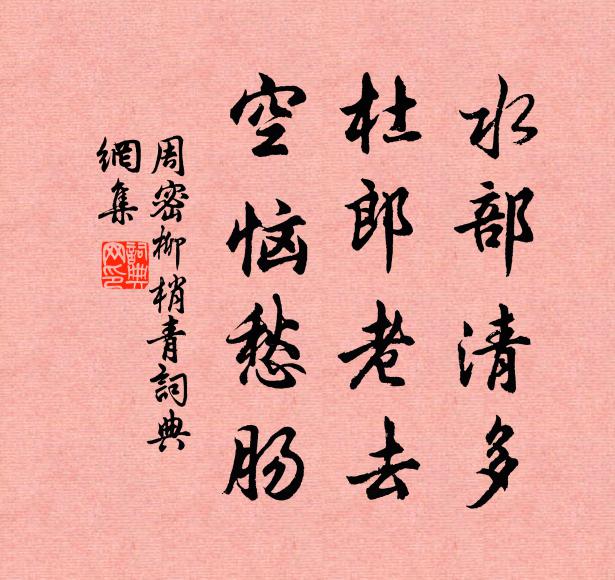 水部清多
杜郎老去
空恼愁肠
周密柳梢青詞典
網集
詞典网印